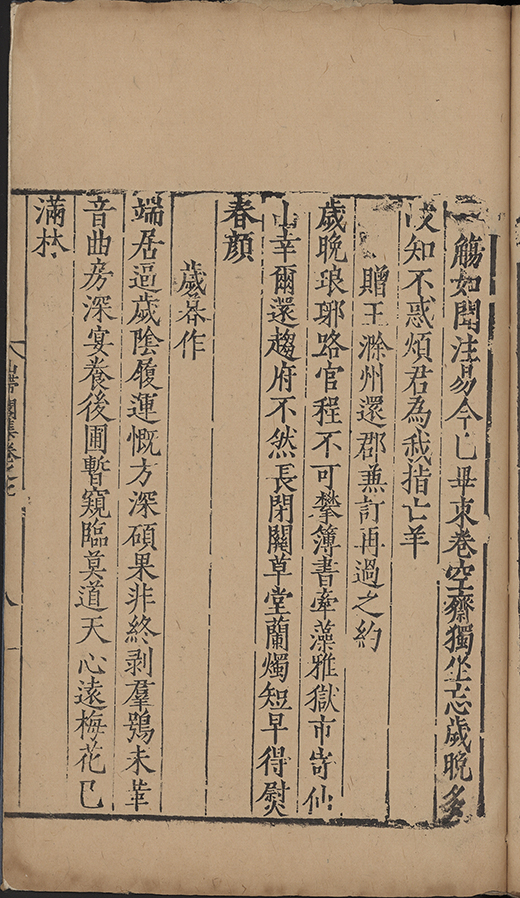 觴如聞注易今已畢束卷空齋獨坐忘歲晚多
岐知不惑煩君為我指亡羊
贈王滁州還郡兼訂再過之約
歲晚琅琊路官程不可攀簿書牽藻雅獄市寄仙
山幸爾還趨府不然長閉關草堂蘭燭短早得熨
春顏
歲暮作
端居逼歲陰履運慨方深碩果非終剥羣鴞未革
音曲房深宴養後圃暫窺臨莫道天心遠梅花已
滿林
山帶閣集卷之七
八